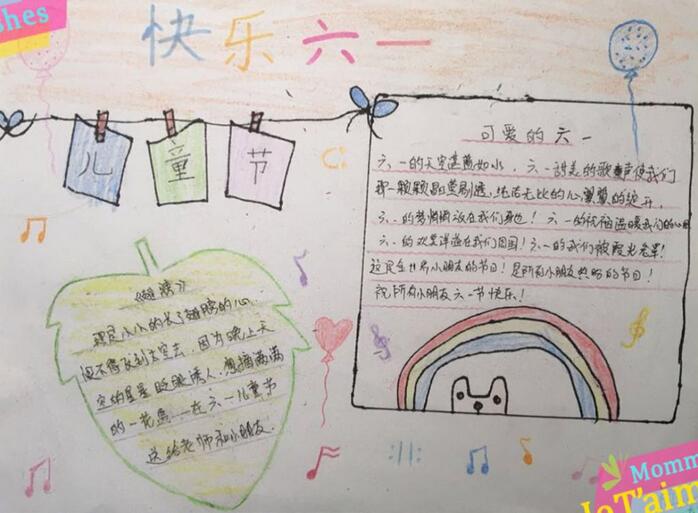 shes
快乐六一
儿童节
可爱的六一
六一的天空湛蓝如水，六一甜美的歌声使我们
那一颗颗晶莹剔透，纯洁无比的心，慢慢的绽开，
六一的梦悄悄放在我们身边！六一的祝福温暖我们的心田
六一的欢笑洋溢在我们周围！六一的我们被阳光笼罩！
这是全世界小朋友的节日！是所有小朋友热盼的节日！
祝所有小朋友六一节快乐！
《翅膀》
那是小小的长了翅膀的心
恨不得飞到太空去，因为晚上天
空的星星眨眼诱人，想摘满满
的一花篮，在六一儿童节
送给老师和小朋友.
Momm
Je T'aim